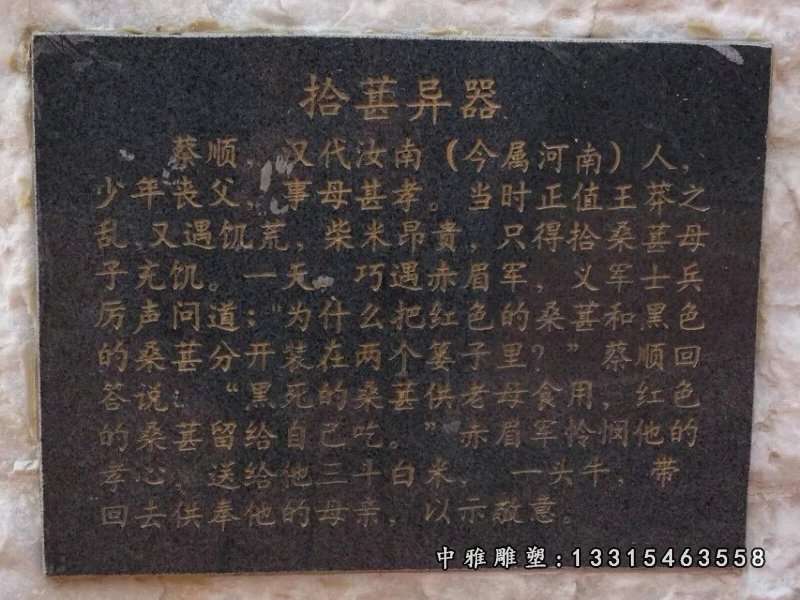 拾葚异器
蔡顺，汉代汝南（今属河南）人，
少年丧父，事母甚孝。当时正值王莽之
乱，又遇饥荒，柴米昂贵，只得拾桑葚母
子充饥。一天，巧遇赤眉军，义军士兵
厉声问道：“为什么把红色的桑葚和黑色
的桑葚分开装在两个篓子里？”蔡顺回
答说：“黑死的桑葚供老母食用，红色
的桑葚留给自己吃。”赤眉军怜悯他的
孝心，送给他三斗白米，一头牛，带
回去供奉他的母亲，以示敬意。
中雅雕塑:13315463558